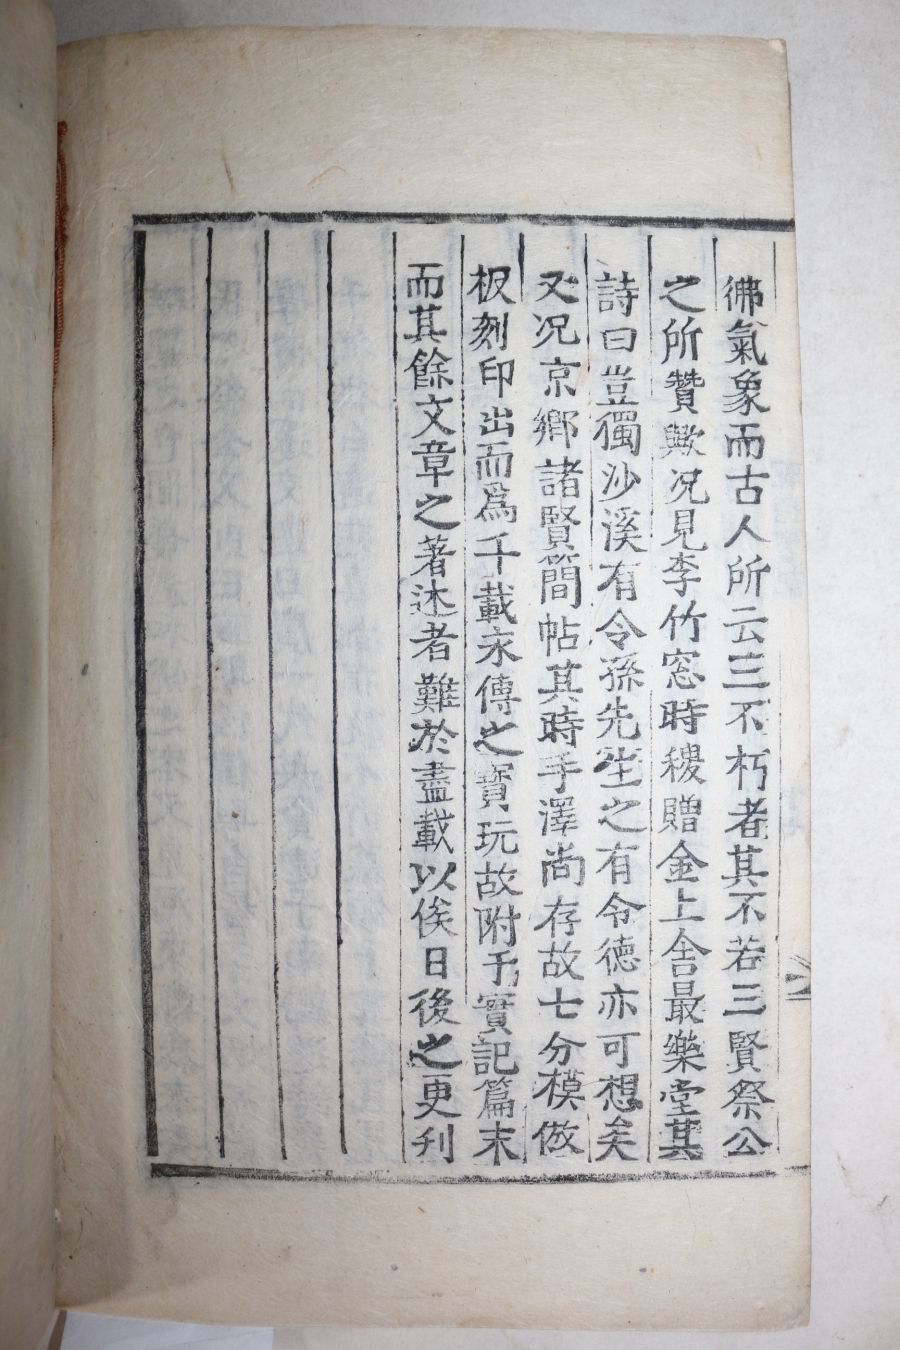 彿氣象而古人所云三不朽者其不若三賢祭公
之所贊歟况見李竹窓時稷贈金上舍最樂堂其
詩曰豈獨沙溪有令孫先生之有令德亦可想矣
又况京鄉諸賢簡帖其時手澤尚存故七分模倣
板刻印出而爲千載永傳之寶玩故附于實記篇末
而其餘文章之著述者難於盡載以俟日後之更刋